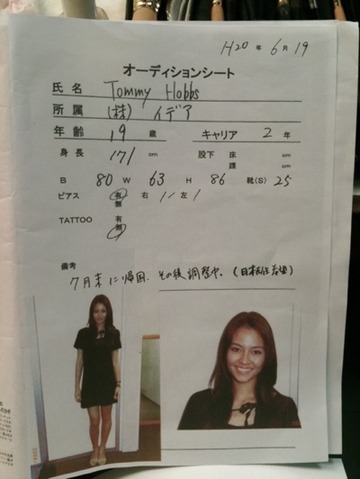 H20 年 6 月 19
オーディションシート
氏 名 Tommy Hobbs
所 属 (株) イデア
年 齢 19 歳 キャリア 2 年
身 長 171 cm 股下 床 cm
腰 cm
B 80 W 63 H 86 靴(S) 25
ピアス 有 無 右 1 左 1
TATTOO 有 無
備考
7月末に帰国、その後調整中。(日本在住希望)